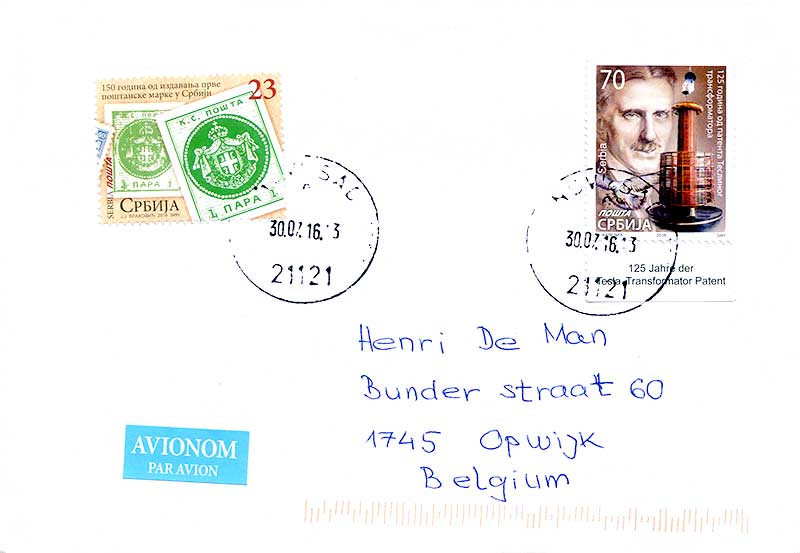 150 година од издавања прве
поштанске марке у Србији
23
К. С. ПОШТА
1 ПАРА 1
К. С. ПОШТА
1 ПАРА 1
SERBIA ПОШТА
СРБИЈА
70
125 година од патента Теслиног
трансформатора
Serbia
ПОШТА
СРБИЈА
125 Jahre der
Tesla Transformator Patent
SAD
30.07.16.13
21121
NOVI SAD
30.07.16.13
21121
Henri De Man
Bunder straat 60
1745 Opwijk
Belgium
AVIONOM
PAR AVION